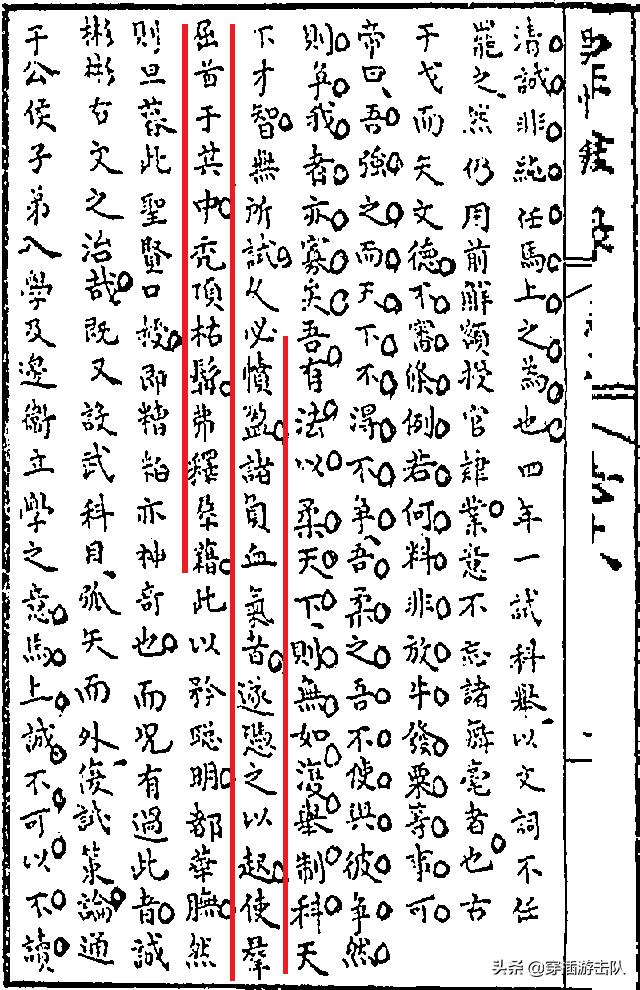 清誠非純任馬上之為也四年一試科舉以文詞不任
罷之然仍用前解額授官肄業意不忘諸舞毫者也古
于戈而矢文德不審條例若何料非放牛發栗等事可
帝曰吾強之而天下不得不爭吾柔之吾不使與彼爭然
則爭我者亦寡矣吾有法以柔天下則無如復舉制科天
下才智無所試久必憤盈諸負血氣者遂憑之以起使羣
區首于其中禿頂枯髯弗釋槧藉此以矜聰明都華膴然
則旦暮此聖賢口授即糟粕亦神奇也而況有過此者誠
彬彬右文之治哉既又設武科目弧矢而外復試策論通
于公侯子弟入學及邊衞立學之意馬上誠不可以不讀
頭条 @穿插游击队